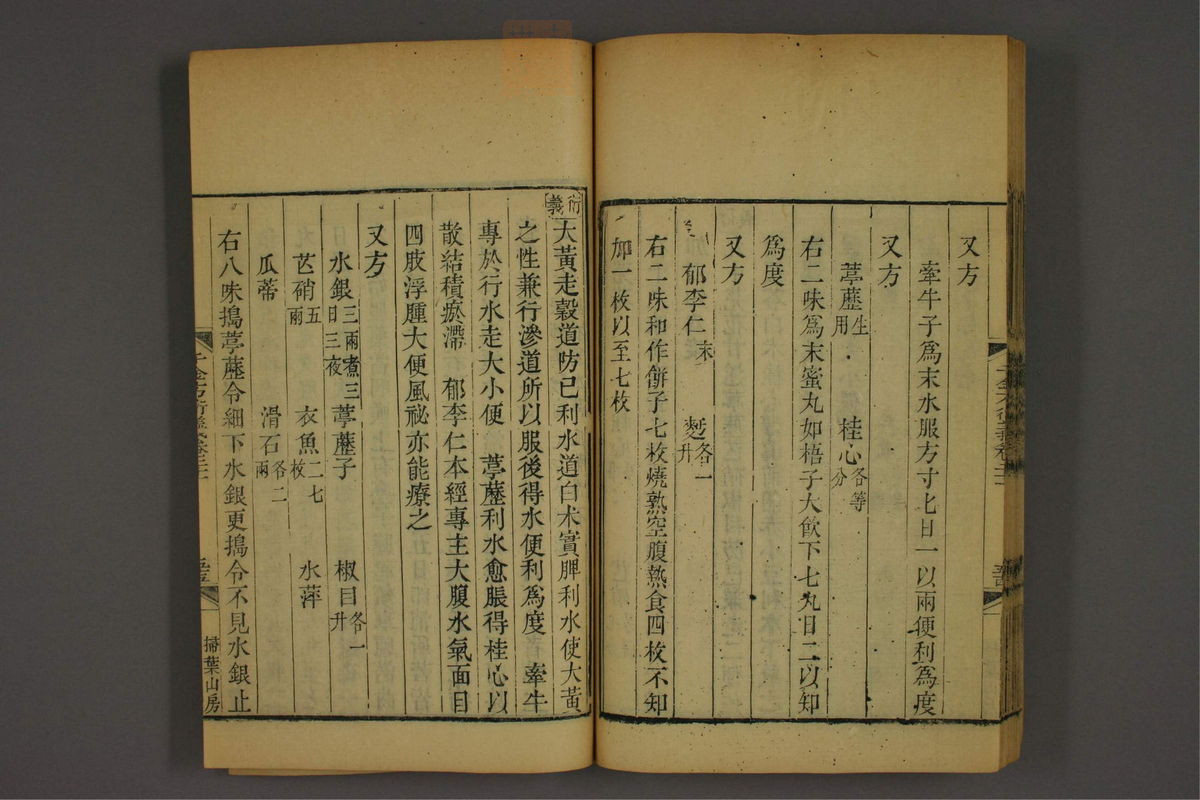 又方
牽牛子爲末水服方寸匕日一以兩便利爲度
又方
葶藶生用 桂心各等分
右二味爲末蜜丸如梧子大飲下七丸日二以知
爲度
又方
郁李仁末 麪各一升
右二味和作餅子七枚燒熟空腹熱食四枚不知
加一枚以至七枚
衍義大黃走穀道防已利水道白朮實脾利水使大黃
之性兼行滲道所以服後得水便利爲度 牽牛
專於行水走大小便 葶藶利水愈脹得桂心以
散結積瘀滯 郁李仁本經專主大腹水氣面目
四肢浮腫大便風祕亦能療之
又方
水銀三兩煮三日三夜 葶藶子 椒目各一升
芒硝五兩 衣魚二七枚 水萍
瓜蒂 滑石各二兩
右八味搗葶藶令細下水銀更搗令不見水銀止
千金方衍義卷二十一
掃葉山房